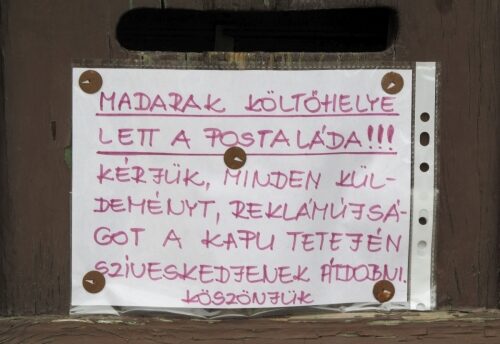 MADARAK KÖLTŐHELYE
LETT A POSTALÁDA!!!
KÉRJÜK, MINDEN KÜL-
DEMÉNYT, REKLÁMÚJSÁ-
GOT A KAPU TETEJÉN
SZÍVESKEDJENEK ÁTDOBNI.
KÖSZÖNJÜK